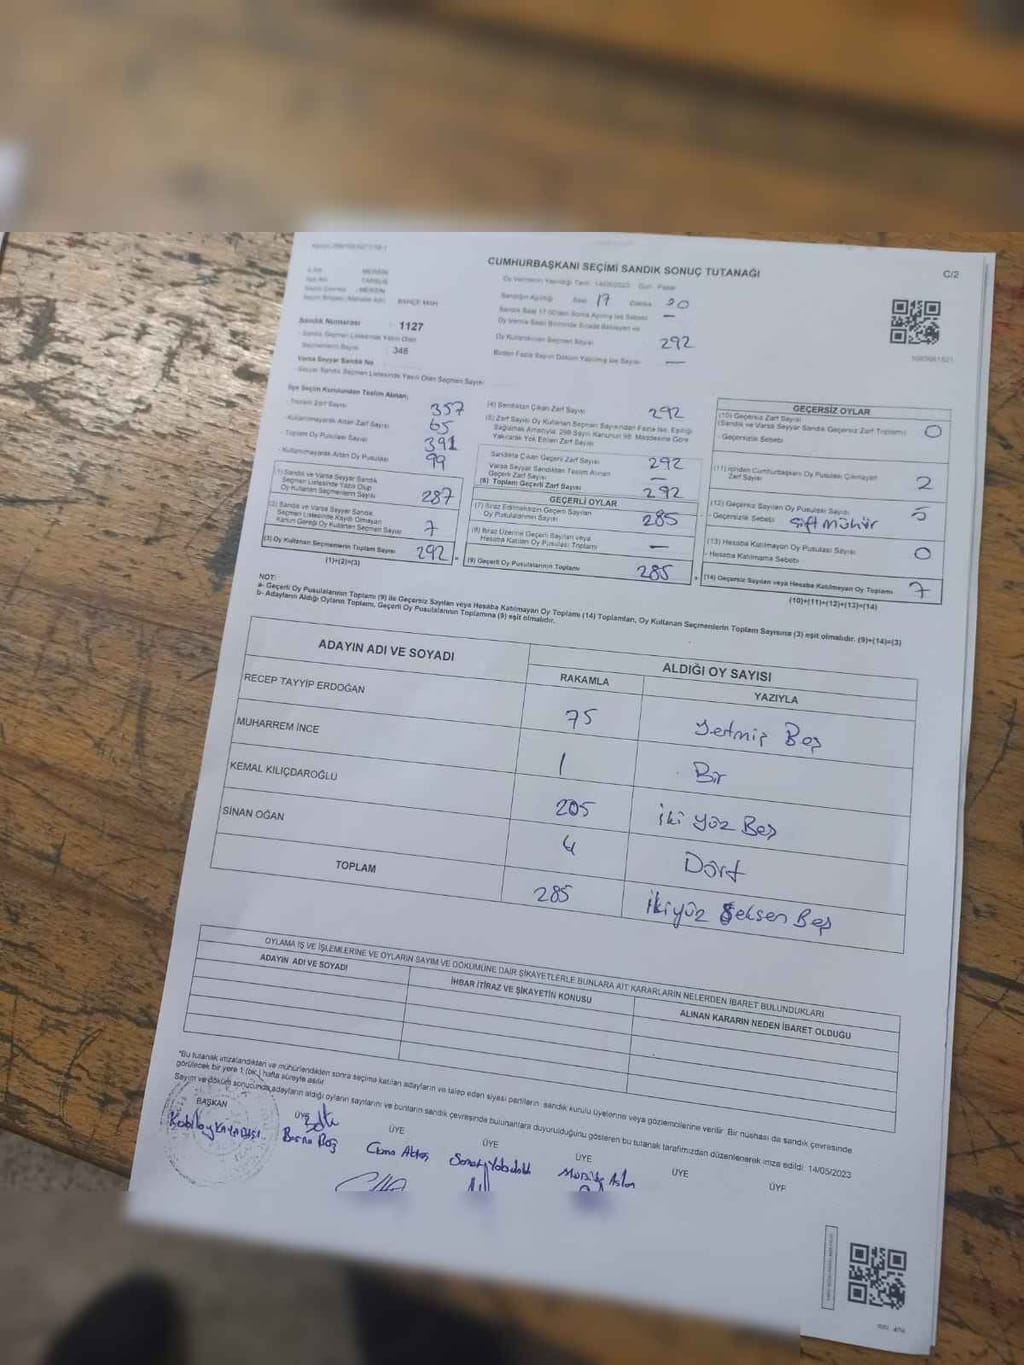 CUMHURBAŞKANI SEÇİMİ SANDIK SONUÇ TUTANAĞI
C/2
Oy Vermenin Yapıldığı Tarih: 14/05/2023 Gün: Pazar
Sandığın Açılışı Saat 17 Dakika 20
MERSİN
TARSUS
MERSİN
BAHÇE MAH
Sandık Numarası : 1127
- Sandık Seçmen Listesinde Yazılı Olan
Seçmenlerin Sayısı : 346
Oy Kullandırılan Seçmen Sayısı 292
Birden Fazla Sayım Döküm Yapılmış ise Sayısı —
Varsa Seyyar Sandık No
- Seyyar Sandık Seçmen Listesinde Yazılı Olan Seçmen Sayısı
İlçe Seçim Kurulundan Teslim Alınan;
- Toplam Zarf Sayısı 357
- Kullanılmayarak Artan Zarf Sayısı 65
- Toplam Oy Pusulası Sayısı 391
- Kullanılmayarak Artan Oy Pusulası 99
(1) Sandık ve Varsa Seyyar Sandık
Seçmen Listesinde Yazılı Olup
Oy Kullanan Seçmenlerin Sayısı 287
(2) Sandık ve Varsa Seyyar Sandık
Seçmen Listesinde Kayıtlı Olmayan
Kanun Gereği Oy Kullanan Seçmen Sayısı 7
(3) Oy Kullanan Seçmenlerin Toplam Sayısı 292
(1)+(2)=(3)
(4) Sandıktan Çıkan Zarf Sayısı 292
(5) Zarf Sayısı Oy Kullanan Seçmen Sayısından Fazla ise, Eşitliği
Sağlamak Amacıyla; 298 Sayılı Kanunun 98. Maddesine Göre
Yakılarak Yok Edilen Zarf Sayısı
Sandıkta Çıkan Geçerli Zarf Sayısı 292
Varsa Seyyar Sandıktan Teslim Alınan
Geçerli Zarf Sayısı —
(6) Toplam Geçerli Zarf Sayısı 292
GEÇERLİ OYLAR
(7) İtiraz Edilmeksizin Geçerli Sayılan
Oy Pusulalarının Sayısı 285
(8) İtiraz Üzerine Geçerli Sayılan veya
Hesaba Katılan Oy Pusulası Toplamı —
(9) Geçerli Oy Pusulalarının Toplamı 285
GEÇERSİZ OYLAR
(10) Geçersiz Zarf Sayısı
(Sandık ve Varsa Seyyar Sandık Geçersiz Zarf Toplamı) 0
- Geçersizlik Sebebi
(11) İçinden Cumhurbaşkanı Oy Pusulası Çıkmayan
Zarf Sayısı 2
(12) Geçersiz Sayılan Oy Pusulası Sayısı 5
- Geçersizlik Sebebi : Çift mühür
(13) Hesaba Katılmayan Oy Pusulası Sayısı 0
- Hesaba Katılmama Sebebi
(14) Geçersiz Sayılan veya Hesaba Katılmayan Oy Toplamı 7
(10)+(11)+(12)+(13)=(14)
NOT:
a- Geçerli Oy Pusulalarının Toplamı (9) ile Geçersiz Sayılan veya Hesaba Katılmayan Oy Toplamı (14) Toplamları, Oy Kullanan Seçmenlerin Toplam Sayısına (3) eşit olmalıdır. (9)+(14)=(3)
b- Adayların Aldığı Oyların Toplamı, Geçerli Oy Pusulalarının Toplamına (9) eşit olmalıdır.
ADAYIN ADI VE SOYADI
ALDIĞI OY SAYISI
RAKAMLA YAZIYLA
RECEP TAYYİP ERDOĞAN 75 Yetmiş Beş
MUHARREM İNCE 1 Bir
KEMAL KILIÇDAROĞLU 205 iki yüz Beş
SİNAN OĞAN 4 Dört
TOPLAM 285 İkiyüz Seksen Beş
OYLAMA İŞ VE İŞLEMLERİNE VE OYLARIN SAYIM VE DÖKÜMÜNE DAİR ŞİKAYETLERLE BUNLARA AİT KARARLARIN NELERDEN İBARET BULUNDUKLARI
ADAYIN ADI VE SOYADI
İHBAR İTİRAZ VE ŞİKAYETİN KONUSU
ALINAN KARARIN NEDEN İBARET OLDUĞU
*Bu tutanak imzalandıktan ve mühürlendikten sonra seçime katılan adayların ve talep eden siyasi partilerin sandık kurulu üyelerine veya gözlemcilerine verilir. Bir nüshası da sandık çevresinde
görülecek bir yere 1 (bir) hafta süreyle asılır.
Sayım ve döküm sonucunda adayların aldığı oyların sayılarını ve bunların sandık çevresinde bulunanlara duyurulduğunu gösteren bu tutanak tarafımızdan düzenlenerek imza edildi. 14/05/2023
BAŞKAN ÜYE ÜYE ÜYE ÜYE ÜYE ÜYE